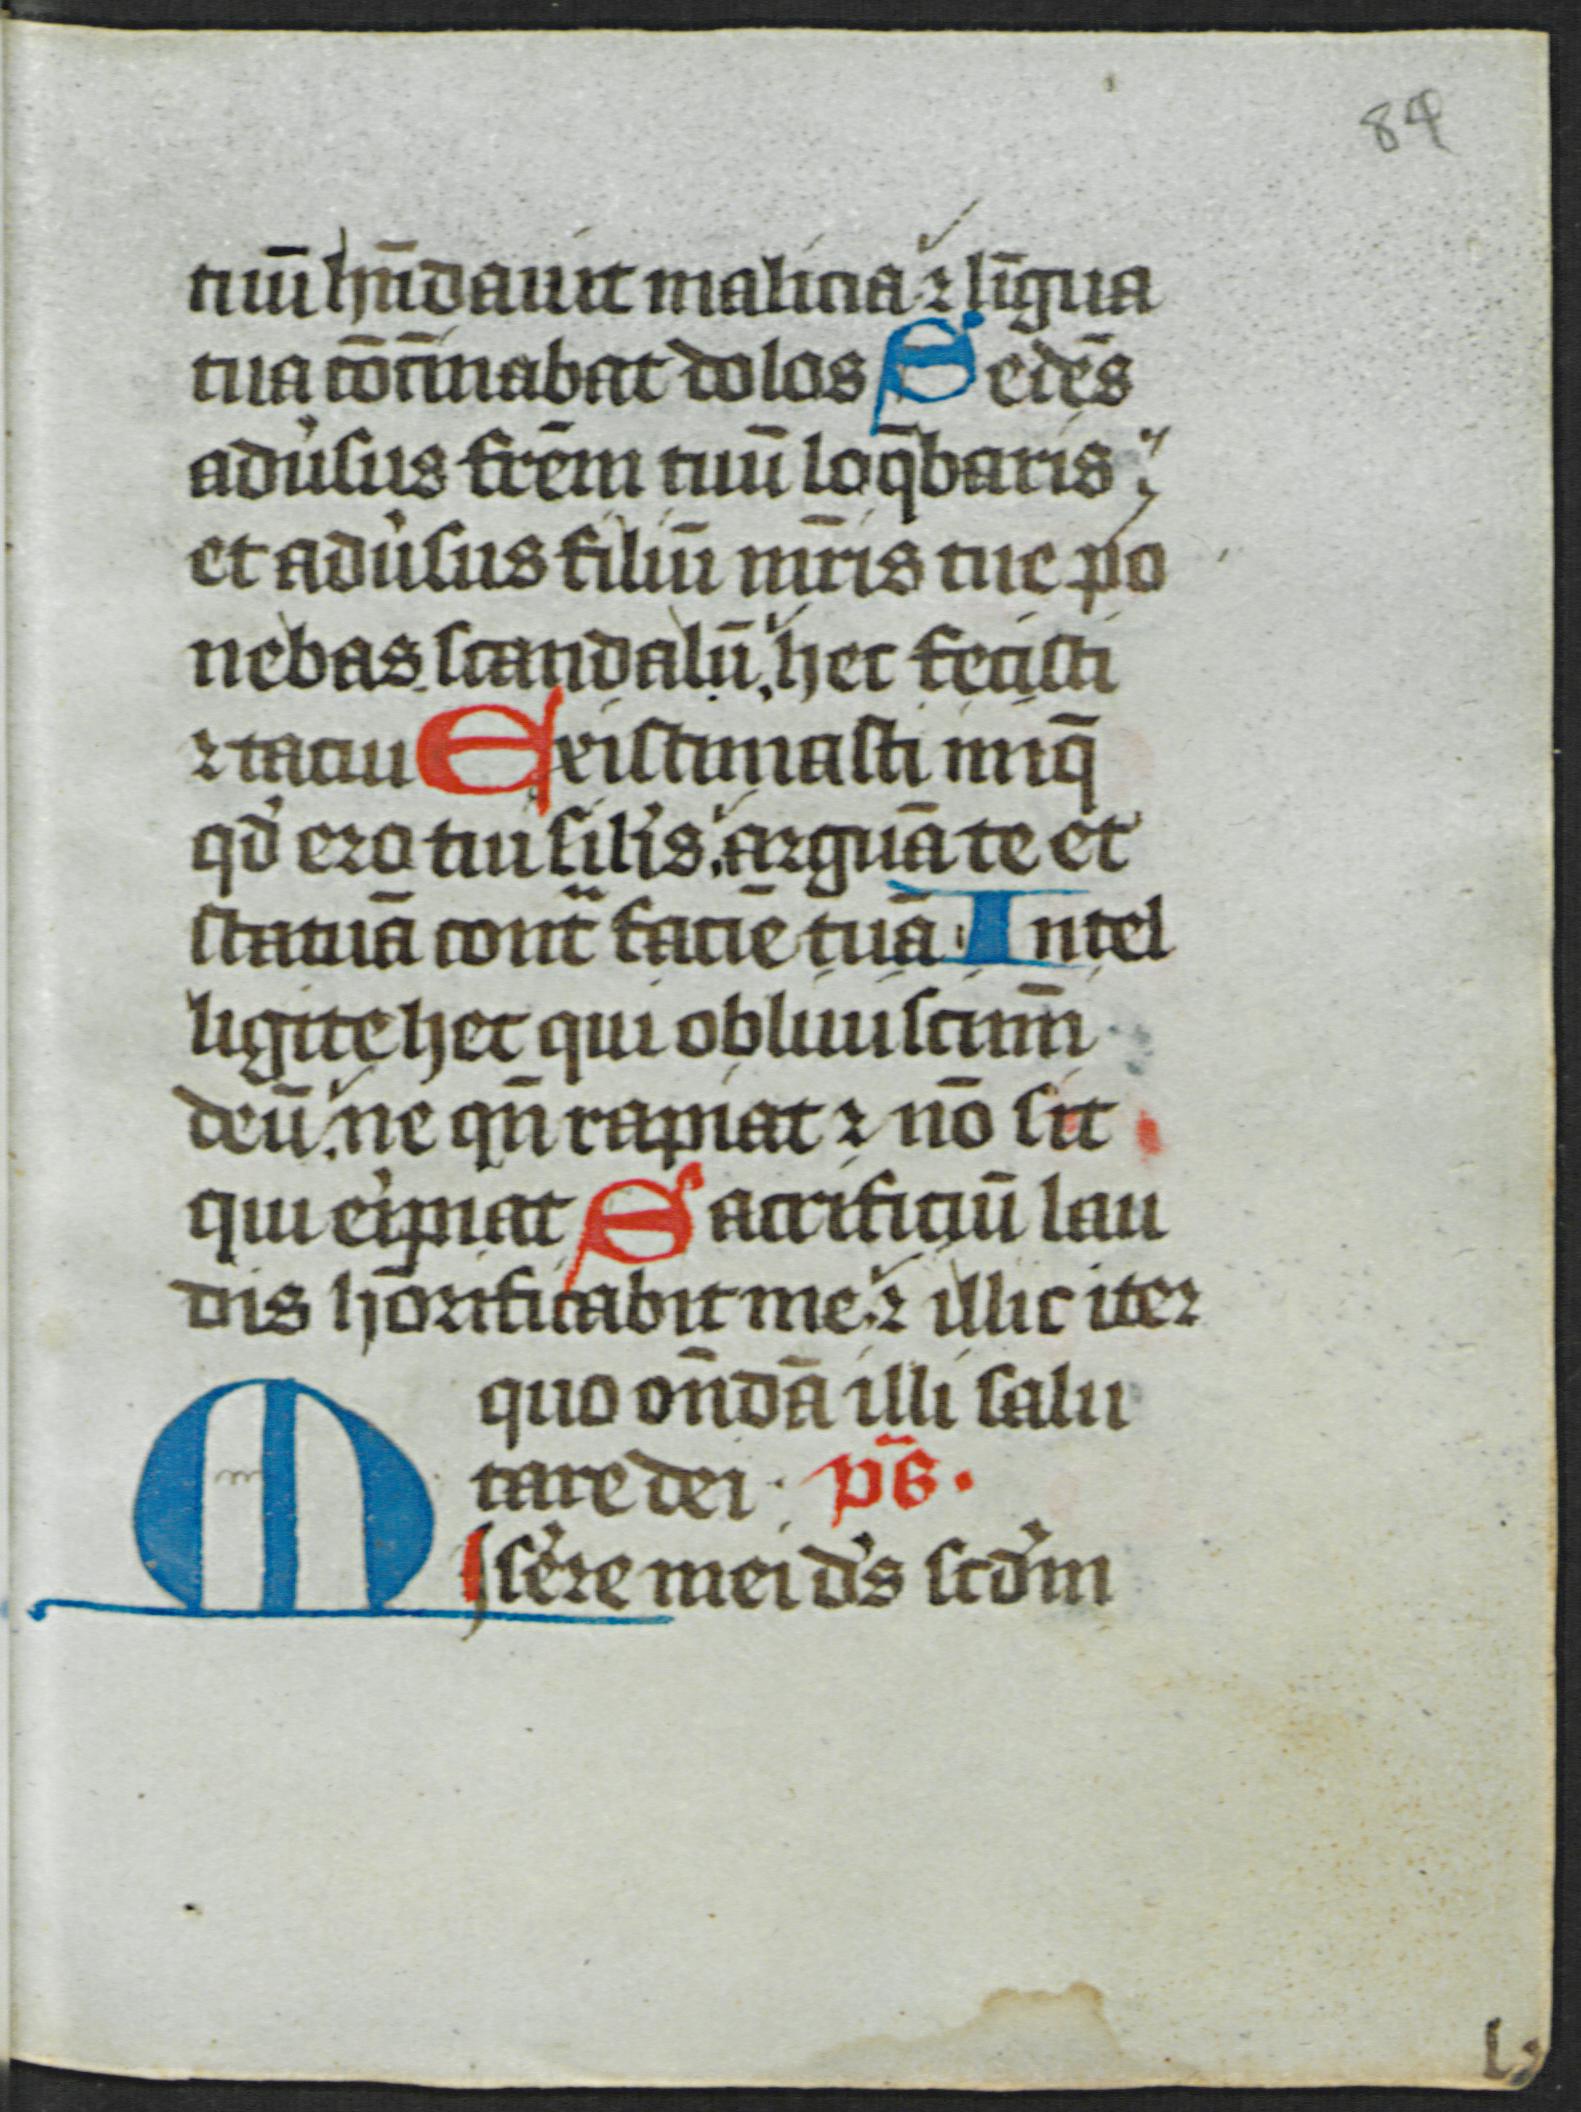 84
tuū hn̄dauit malicia ⁊ līgua
tua cōcīnabat dolos Sedēs
adu̓sus frēm tuū loq̄baris
et adu̓sus filiū mr̄is tue po
nebas scandalū. hec fecisti
⁊ tacui Existimasti iniq̄
qd̓ ero tui sil̓is. arguā te et
statuā cont͛ faciē tuā Intel
ligite hec qui obliuiscimī
deū. ne qn̄ rapiat ⁊ nō sit
qui e̓ipiat Sacrificiū lau
dis hōrificabit me. ⁊ illic iter
quo on̄dā illi salu
tare dei. p̄s.
Mise̓re mei d̓s scd̓m